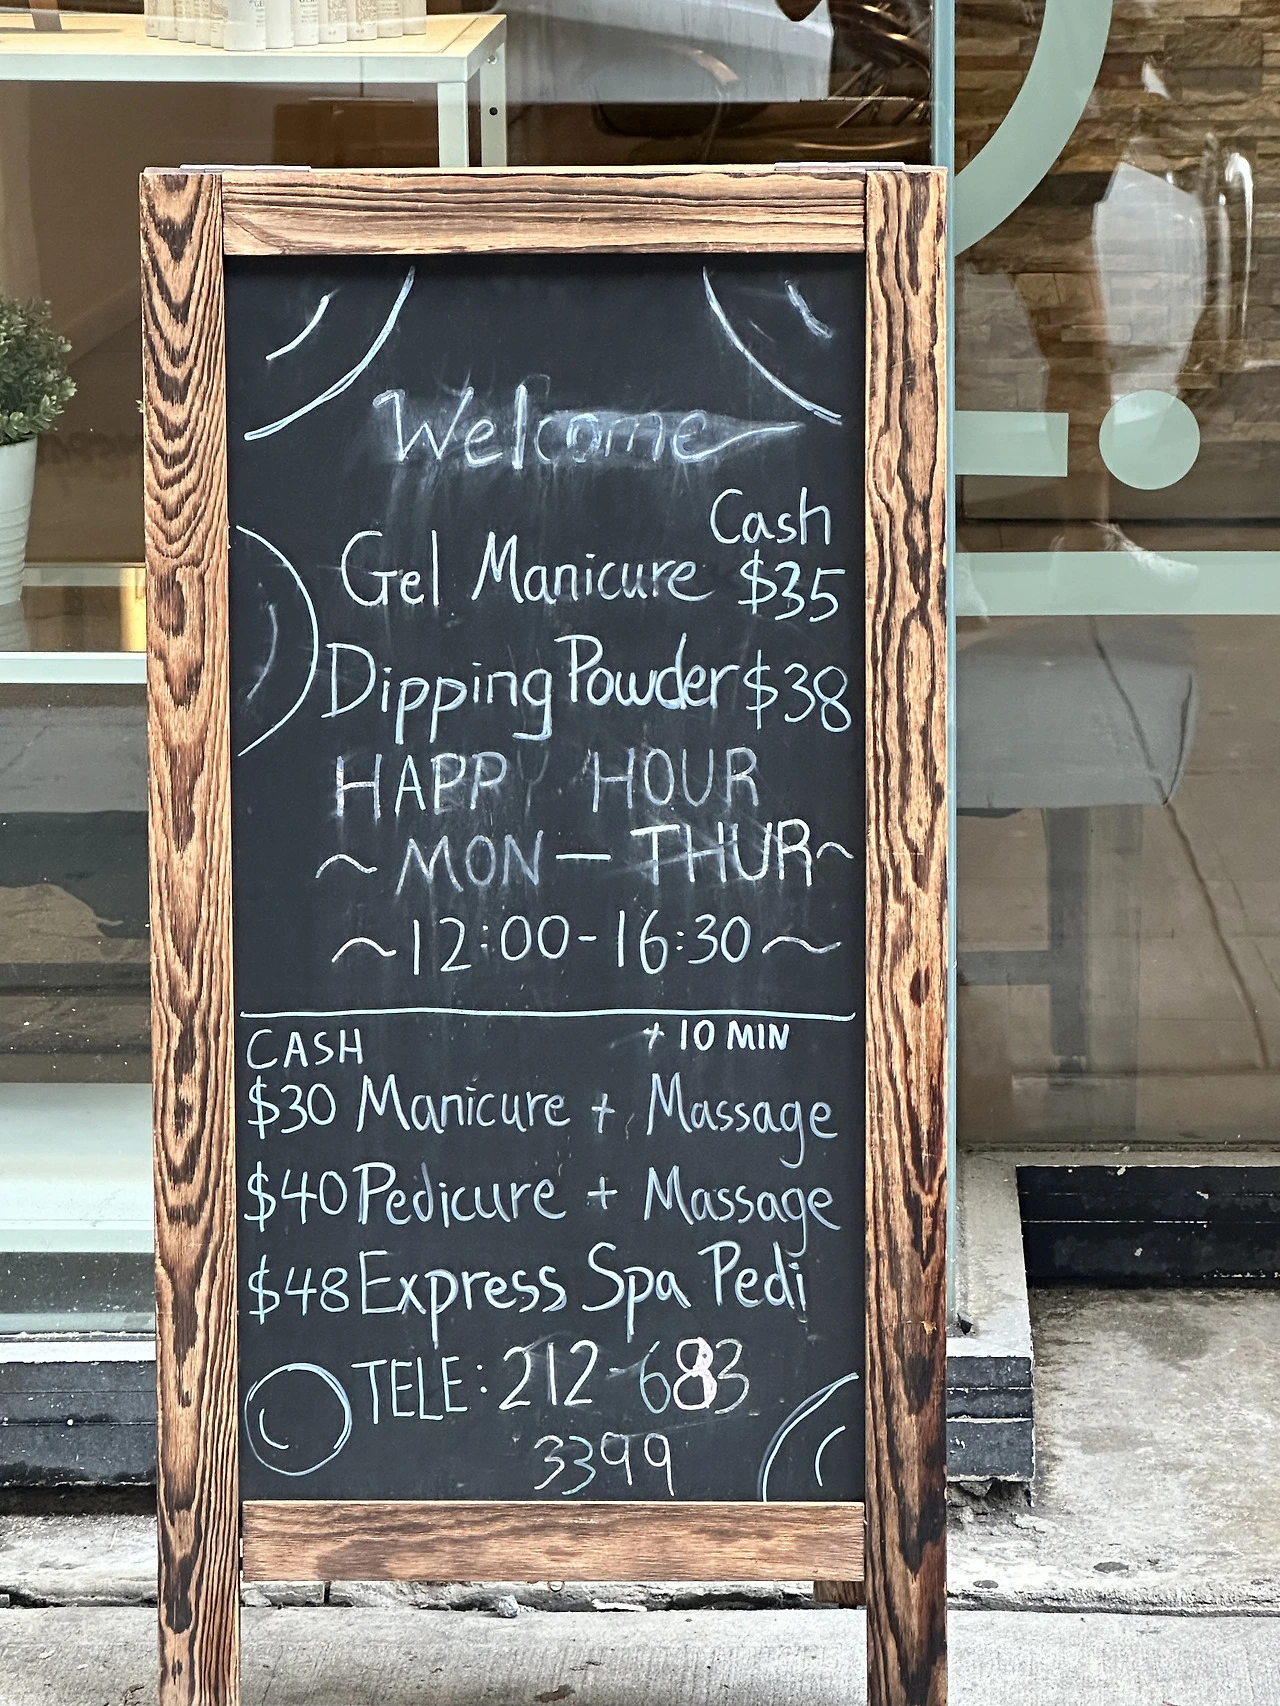 Welcome
Cash
Gel Manicure $35
Dipping Powder $38
HAPPY HOUR
~ MON — THUR ~
~ 12:00 - 16:30 ~
CASH + 10 MIN
$30 Manicure + Massage
$40 Pedicure + Massage
$48 Express Spa Pedi
TELE: 212-683
3399